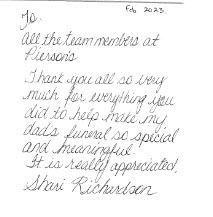 Feb 2023
To.
All the team members at
Pierson's
Thank you all so very
much for everything you
did to help make my
dad's funeral so special
and meaningful!
It is really appreciated.
Shari Richardson